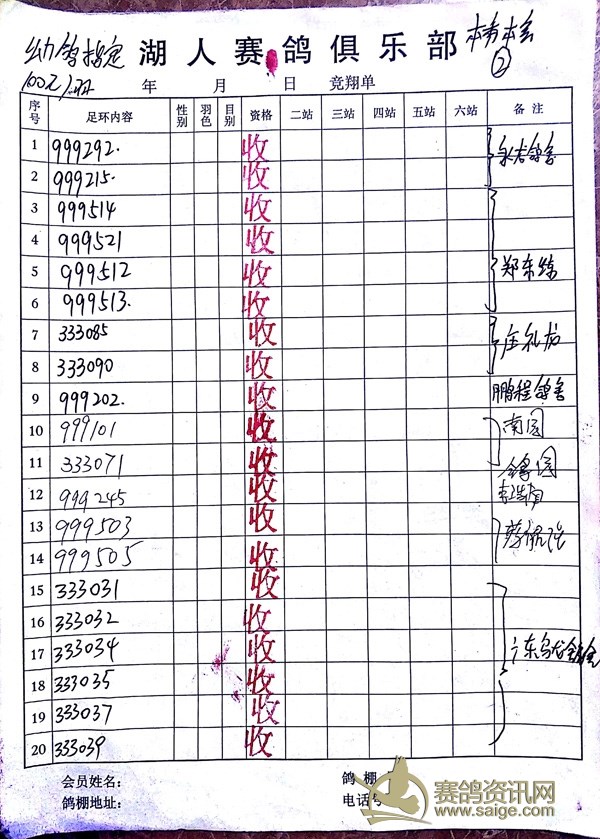 幼鸽指定 湖人赛鸽俱乐部 ②
100元/羽 年 月 日 竞翔单
序号 足环内容 性别 羽色 目别 资格 二站 三站 四站 五站 六站 备注
1 999292. 收
2 999215. 收
3 999514 收
4 999521 收
5 999512 收 郑东练
6 999513. 收
7 333085 收
8 333090 收
9 999202. 收 鹏程鸽舍
10 999101 收 南园
11 333071 收
12 999245 收
13 999503 收
14 999505 收
15 333031 收
16 333032 收
17 333034 收
18 333035 收
19 333037 收
20 333039 收
会员姓名： 鸽棚
鸽棚地址： 电话号
赛鸽资讯网
www.saige.com